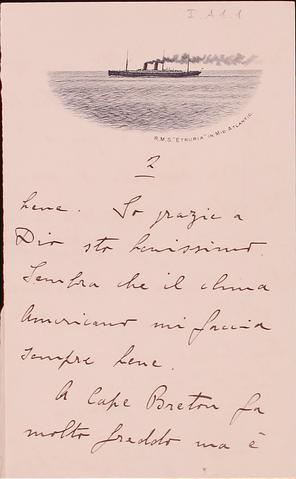 I A 1.1
R.M.S. "ETRURIA" IN MID ATLANTIC.
2
bene. Io grazie a
Dio sto benissimo.
Sembra che il clima
Americano mi faccia
sempre bene.
A Cape Breton fa
molto freddo ma è